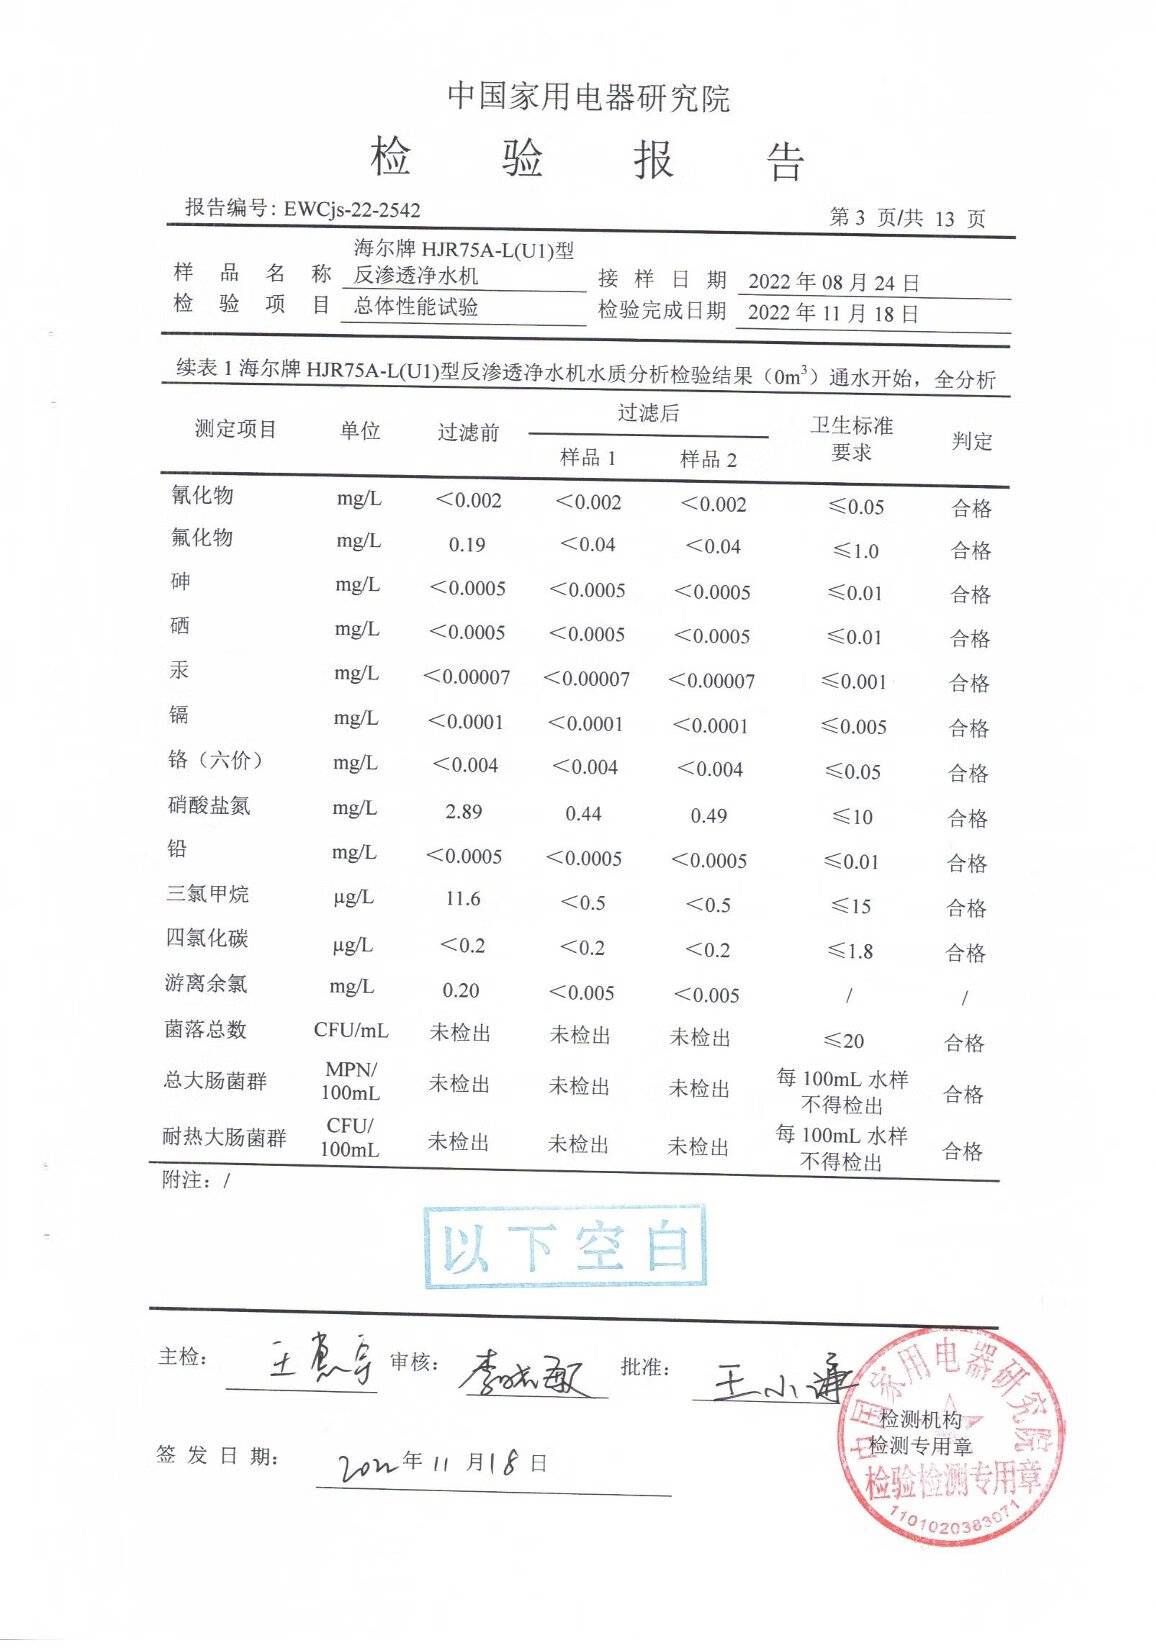 中国家用电器研究院
检验报告
报告编号：EWCjs-22-2542
第 3 页/共 13 页
海尔牌 HJR75A-L(U1)型
样品名称 反渗透净水机 接样日期 2022 年 08 月 24 日
检验项目 总体性能试验 检验完成日期 2022 年 11 月 18 日
续表 1 海尔牌 HJR75A-L(U1)型反渗透净水机水质分析检验结果（0m³）通水开始，全分析
测定项目 单位 过滤前 过滤后 卫生标准要求 判定
样品 1 样品 2
氰化物 mg/L ＜0.002 ＜0.002 ＜0.002 ≤0.05 合格
氟化物 mg/L 0.19 ＜0.04 ＜0.04 ≤1.0 合格
砷 mg/L ＜0.0005 ＜0.0005 ＜0.0005 ≤0.01 合格
硒 mg/L ＜0.0005 ＜0.0005 ＜0.0005 ≤0.01 合格
汞 mg/L ＜0.00007 ＜0.00007 ＜0.00007 ≤0.001 合格
镉 mg/L ＜0.0001 ＜0.0001 ＜0.0001 ≤0.005 合格
铬（六价） mg/L ＜0.004 ＜0.004 ＜0.004 ≤0.05 合格
硝酸盐氮 mg/L 2.89 0.44 0.49 ≤10 合格
铅 mg/L ＜0.0005 ＜0.0005 ＜0.0005 ≤0.01 合格
三氯甲烷 μg/L 11.6 ＜0.5 ＜0.5 ≤15 合格
四氯化碳 μg/L ＜0.2 ＜0.2 ＜0.2 ≤1.8 合格
游离余氯 mg/L 0.20 ＜0.005 ＜0.005 / /
菌落总数 CFU/mL 未检出 未检出 未检出 ≤20 合格
总大肠菌群 MPN/100mL 未检出 未检出 未检出 每 100mL 水样不得检出 合格
耐热大肠菌群 CFU/100mL 未检出 未检出 未检出 每 100mL 水样不得检出 合格
附注：/
以下空白
主检： 审核： 批准： 王小谦
签发日期： 2022 年 11 月 18 日
中国家用电器研究院
检测机构
检测专用章
检验检测专用章
1101020383071